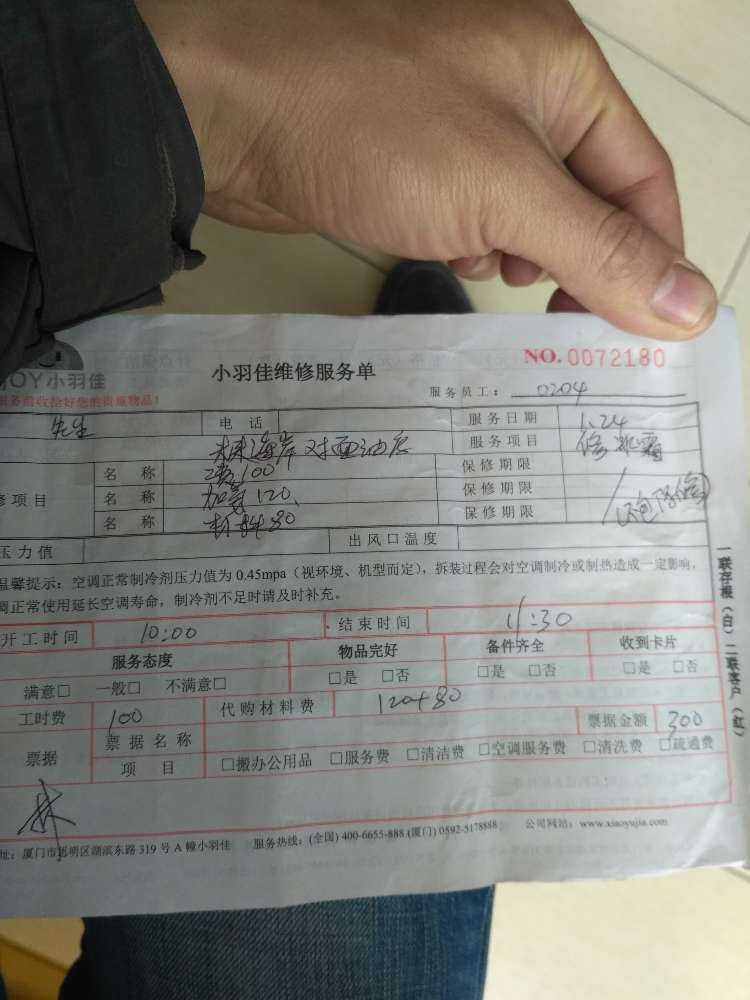 NO.0072180
JOY小羽佳
小羽佳维修服务单
服务员工：0204
服务前收拾好您的贵重物品！
先生 电话 服务日期 1.24
未来海岸对面油店 服务项目 修
名称 100 保修期限
修项目 名称 加氟120、 保修期限
名称 材料80 保修期限
压力值 出风口温度
温馨提示：空调正常制冷剂压力值为0.45mpa（视环境、机型而定），拆装过程会对空调制冷或制热造成一定影响，
调正常使用延长空调寿命，制冷剂不足时请及时补充。
开工时间 10:00 结束时间 11:30
服务态度 物品完好 备件齐全 收到卡片
满意□ 一般□ 不满意□ □是 □否 □是 □否 □是 □否
工时费 100 代购材料费 120+80
票据 票据名称 票据金额 300
项目 □搬办公用品 □服务费 □清洁费 □空调服务费 □清洗费 □疏通费
址：厦门市思明区湖滨东路319号A幢小羽佳 服务热线：(全国) 400-6655-888 (厦门) 0592-5178888 公司网站：www.xiaoyujia.com
一联存根（白）二联客户（红）